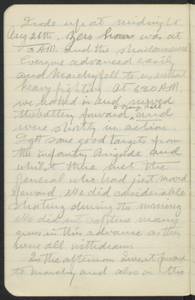 rode up at midnight
Aug 26th, Zero hour was at
3 A.M. and the
Everyone advanced easily
and Monchy fell to us without
heavy fighting. At 6.20 A.M.
we hooked in and moved
the battery forward and
were shortly in action
Got some good targets from
the infantry Brigade and
whilst there met the
General who had just moved
forward. We did considerable
shooting during the morning
We did not
guns in this advance as they
were all withdrawn.
In the afternoon I went forward
to Monchy and also on the